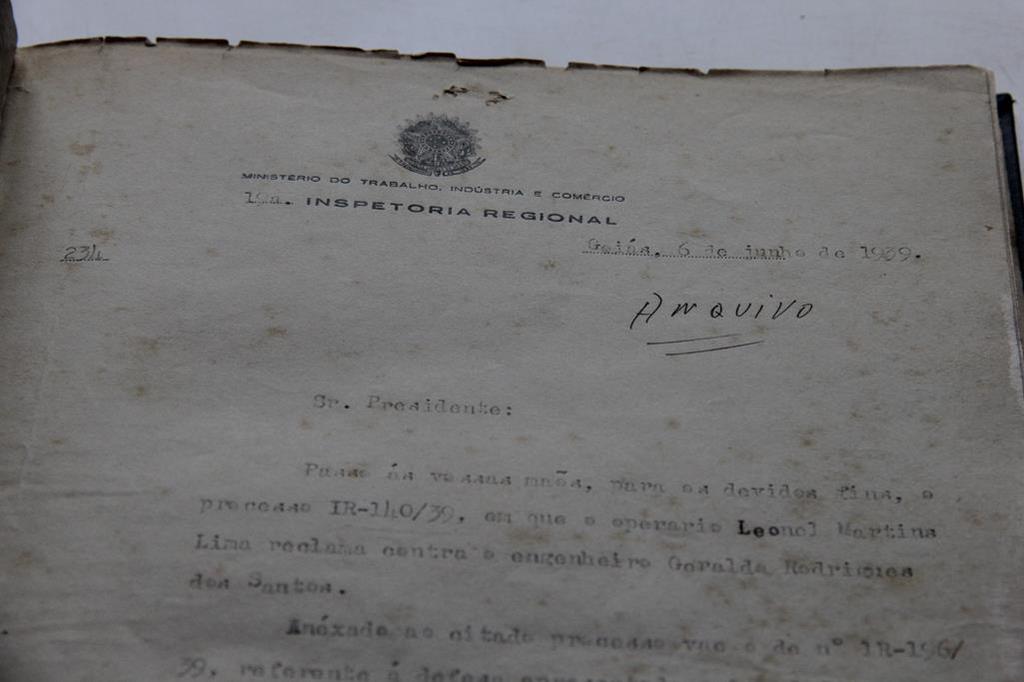 MINISTÉRIO DO TRABALHO, INDÚSTRIA E COMÉRCIO
INSPETORIA REGIONAL
234
Goiás, 6 de junho de 1939.
ARQUIVO
Sr. Presidente:
Passo ás vossas mãos, para os devidos fins, o
processo IR-140/39, em que o operario Leonel Martins
Lima reclama contra o engenheiro Geraldo Rodrigues
dos Santos.
Anéxado ao citado processo vae o de nº IR-196/
39, referente á defesa